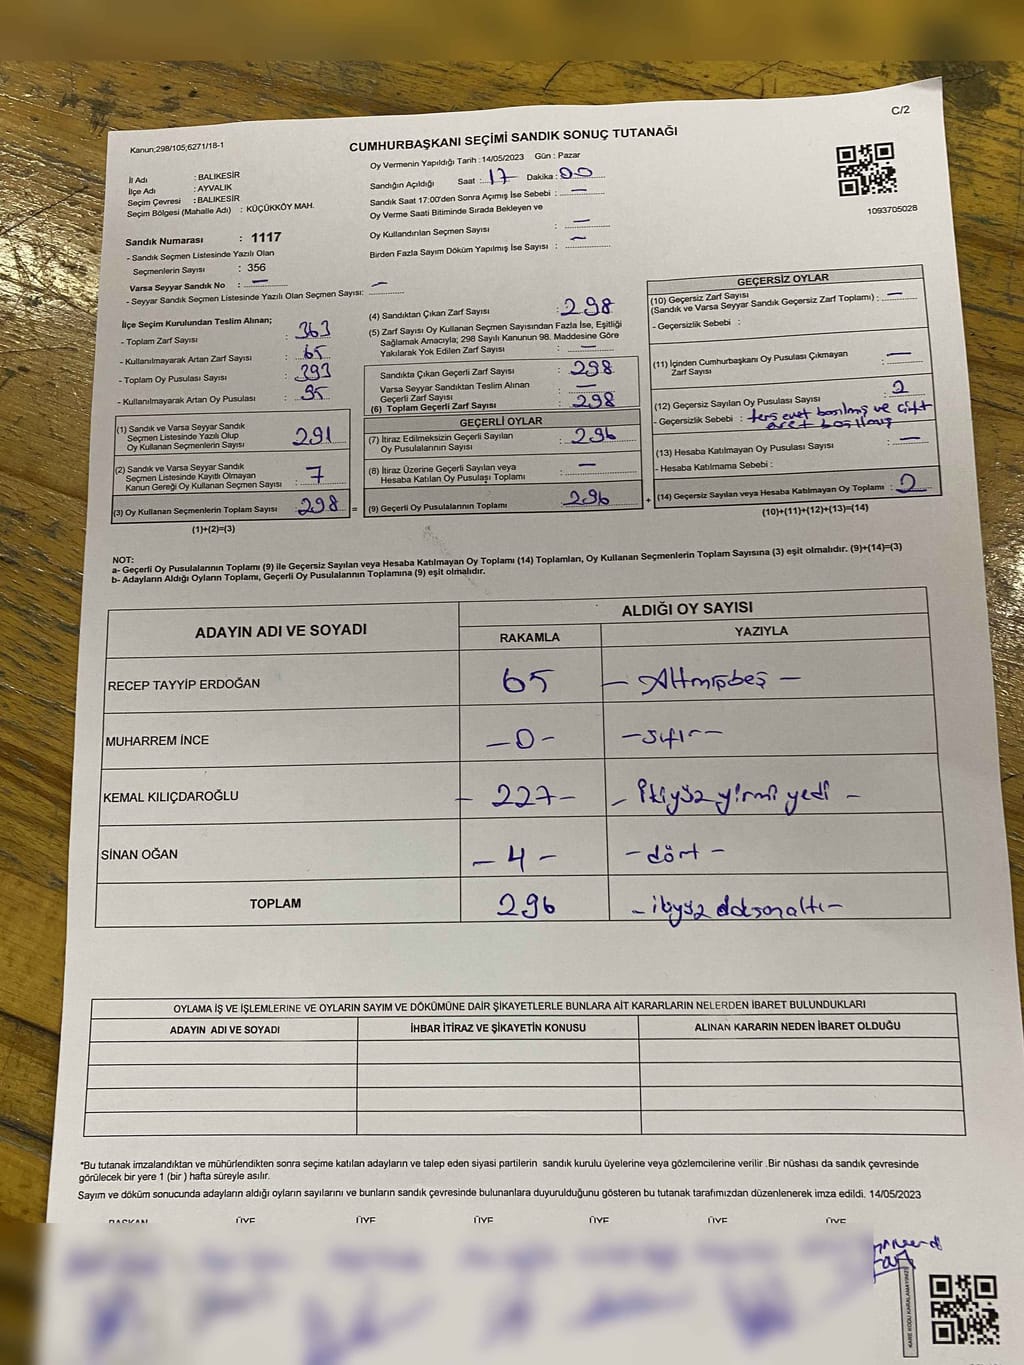 C/2
Kanun;298/105;6271/18-1
CUMHURBAŞKANI SEÇİMİ SANDIK SONUÇ TUTANAĞI
İl Adı : BALIKESİR
İlçe Adı : AYVALIK
Seçim Çevresi : BALIKESİR
Seçim Bölgesi (Mahalle Adı) : KÜÇÜKKÖY MAH.
Sandık Numarası : 1117
- Sandık Seçmen Listesinde Yazılı Olan
Seçmenlerin Sayısı : 356
Varsa Seyyar Sandık No : —
- Seyyar Sandık Seçmen Listesinde Yazılı Olan Seçmen Sayısı: —
Oy Vermenin Yapıldığı Tarih : 14/05/2023 Gün : Pazar
Sandığın Açıldığı Saat : 17 Dakika : 00
Sandık Saat 17:00'den Sonra Açımış İse Sebebi : —
Oy Verme Saati Bitiminde Sırada Bekleyen ve
Oy Kullandırılan Seçmen Sayısı : —
Birden Fazla Sayım Döküm Yapılmış İse Sayısı : —
1093705028
İlçe Seçim Kurulundan Teslim Alınan;
- Toplam Zarf Sayısı : 363
- Kullanılmayarak Artan Zarf Sayısı : 65
- Toplam Oy Pusulası Sayısı : 393
- Kullanılmayarak Artan Oy Pusulası : 95
(1) Sandık ve Varsa Seyyar Sandık
Seçmen Listesinde Yazılı Olup
Oy Kullanan Seçmenlerin Sayısı : 291
(2) Sandık ve Varsa Seyyar Sandık
Seçmen Listesinde Kayıtlı Olmayan
Kanun Gereği Oy Kullanan Seçmen Sayısı : 7
(3) Oy Kullanan Seçmenlerin Toplam Sayısı : 298 =
(1)+(2)=(3)
(4) Sandıktan Çıkan Zarf Sayısı : 298
(5) Zarf Sayısı Oy Kullanan Seçmen Sayısından Fazla İse, Eşitliği
Sağlamak Amacıyla; 298 Sayılı Kanunun 98. Maddesine Göre
Yakılarak Yok Edilen Zarf Sayısı : —
Sandıkta Çıkan Geçerli Zarf Sayısı : 298
Varsa Seyyar Sandıktan Teslim Alınan
Geçerli Zarf Sayısı : —
(6) Toplam Geçerli Zarf Sayısı : 298
GEÇERLİ OYLAR
(7) İtiraz Edilmeksizin Geçerli Sayılan
Oy Pusulalarının Sayısı : 296
(8) İtiraz Üzerine Geçerli Sayılan veya
Hesaba Katılan Oy Pusulaşı Toplamı : —
(9) Geçerli Oy Pusulalarının Toplamı : 296 +
GEÇERSİZ OYLAR
(10) Geçersiz Zarf Sayısı
(Sandık ve Varsa Seyyar Sandık Geçersiz Zarf Toplamı) : —
- Geçersizlik Sebebi :
(11) İçinden Cumhurbaşkanı Oy Pusulası Çıkmayan
Zarf Sayısı : —
(12) Geçersiz Sayılan Oy Pusulası Sayısı : 2
- Geçersizlik Sebebi : ters evet basılmış ve çift
(13) Hesaba Katılmayan Oy Pusulası Sayısı : —
- Hesaba Katılmama Sebebi :
(14) Geçersiz Sayılan veya Hesaba Katılmayan Oy Toplamı : 2
(10)+(11)+(12)+(13)=(14)
NOT:
a- Geçerli Oy Pusulalarının Toplamı (9) ile Geçersiz Sayılan veya Hesaba Katılmayan Oy Toplamı (14) Toplamları, Oy Kullanan Seçmenlerin Toplam Sayısına (3) eşit olmalıdır. (9)+(14)=(3)
b- Adayların Aldığı Oyların Toplamı, Geçerli Oy Pusulalarının Toplamına (9) eşit olmalıdır.
ADAYIN ADI VE SOYADI
ALDIĞI OY SAYISI
RAKAMLA YAZIYLA
RECEP TAYYİP ERDOĞAN 65 — Altmışbeş —
MUHARREM İNCE —0— —sıfır—
KEMAL KILIÇDAROĞLU — 227— — İkiyüz yirmi yedi —
SİNAN OĞAN —4— —dört—
TOPLAM 296 —ikiyüz doksanaltı—
OYLAMA İŞ VE İŞLEMLERINE VE OYLARIN SAYIM VE DÖKÜMÜNE DAİR ŞİKAYETLERLE BUNLARA AİT KARARLARIN NELERDEN İBARET BULUNDUKLARI
ADAYIN ADI VE SOYADI İHBAR İTİRAZ VE ŞİKAYETİN KONUSU ALINAN KARARIN NEDEN İBARET OLDUĞU
*Bu tutanak imzalandıktan ve mühürlendikten sonra seçime katılan adayların ve talep eden siyasi partilerin sandık kurulu üyelerine veya gözlemcilerine verilir .Bir nüshası da sandık çevresinde
görülecek bir yere 1 (bir ) hafta süreyle asılır.
Sayım ve döküm sonucunda adayların aldığı oyların sayılarını ve bunların sandık çevresinde bulunanlara duyurulduğunu gösteren bu tutanak tarafımızdan düzenlenerek imza edildi. 14/05/2023
BAŞKAN ÜYE ÜYE ÜYE ÜYE ÜYE ÜYE
KARE KODU KARALAMAYINIZ